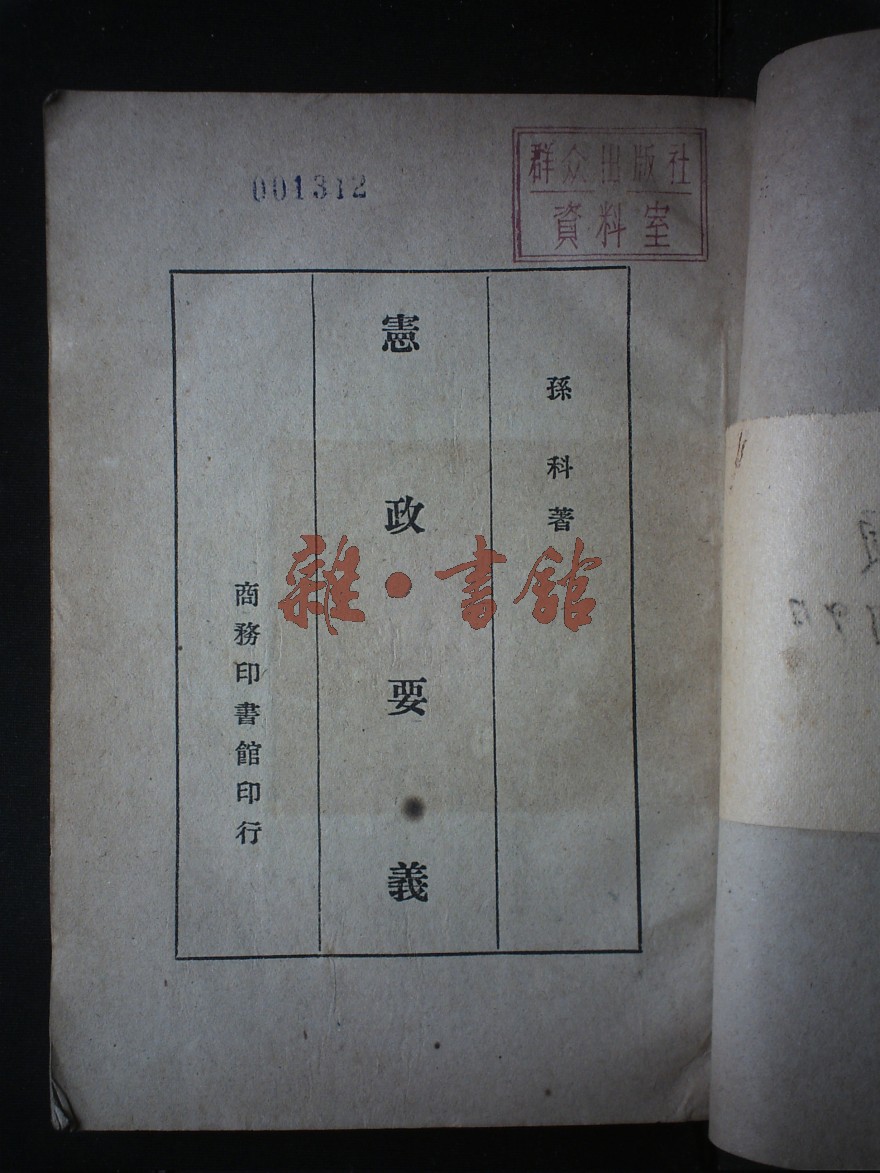 001312
群众出版社
資料室
孫科著
憲政要義
商務印書館印行
雜·書館